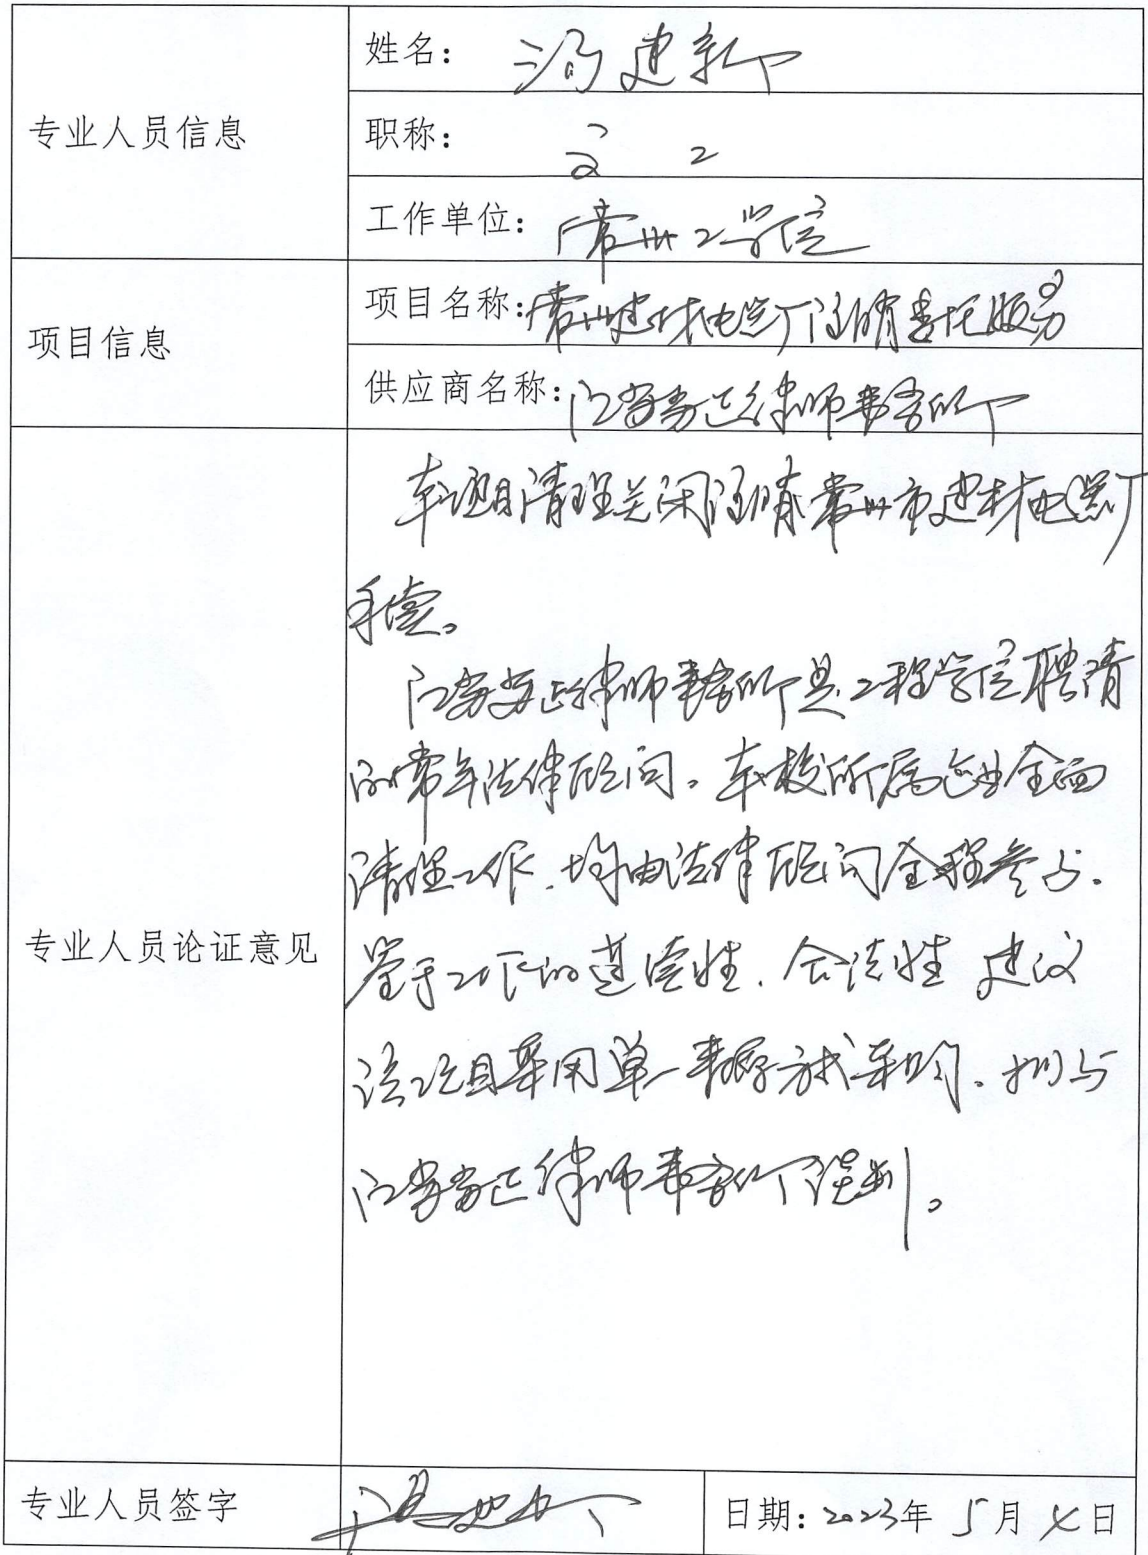 专业人员信息
姓名: 汤建新
职称: 高工
工作单位: 常州工学院
项目信息
项目名称: 常州建材电器厂注销委托服务
供应商名称: 江苏苏正律师事务所
专业人员论证意见
本项目清理关闭注销常州市建材电器厂
手续。
江苏苏正律师事务所是工程学院聘请
的常年法律顾问。本校所属企业全面
清理工作、均由法律顾问全程参与.
鉴于工作的连续性、合法性 建议
该项目采用单一来源方式采购、拟与
江苏苏正律师事务所谈判。
专业人员签字
日期: 2023年 5月 4日